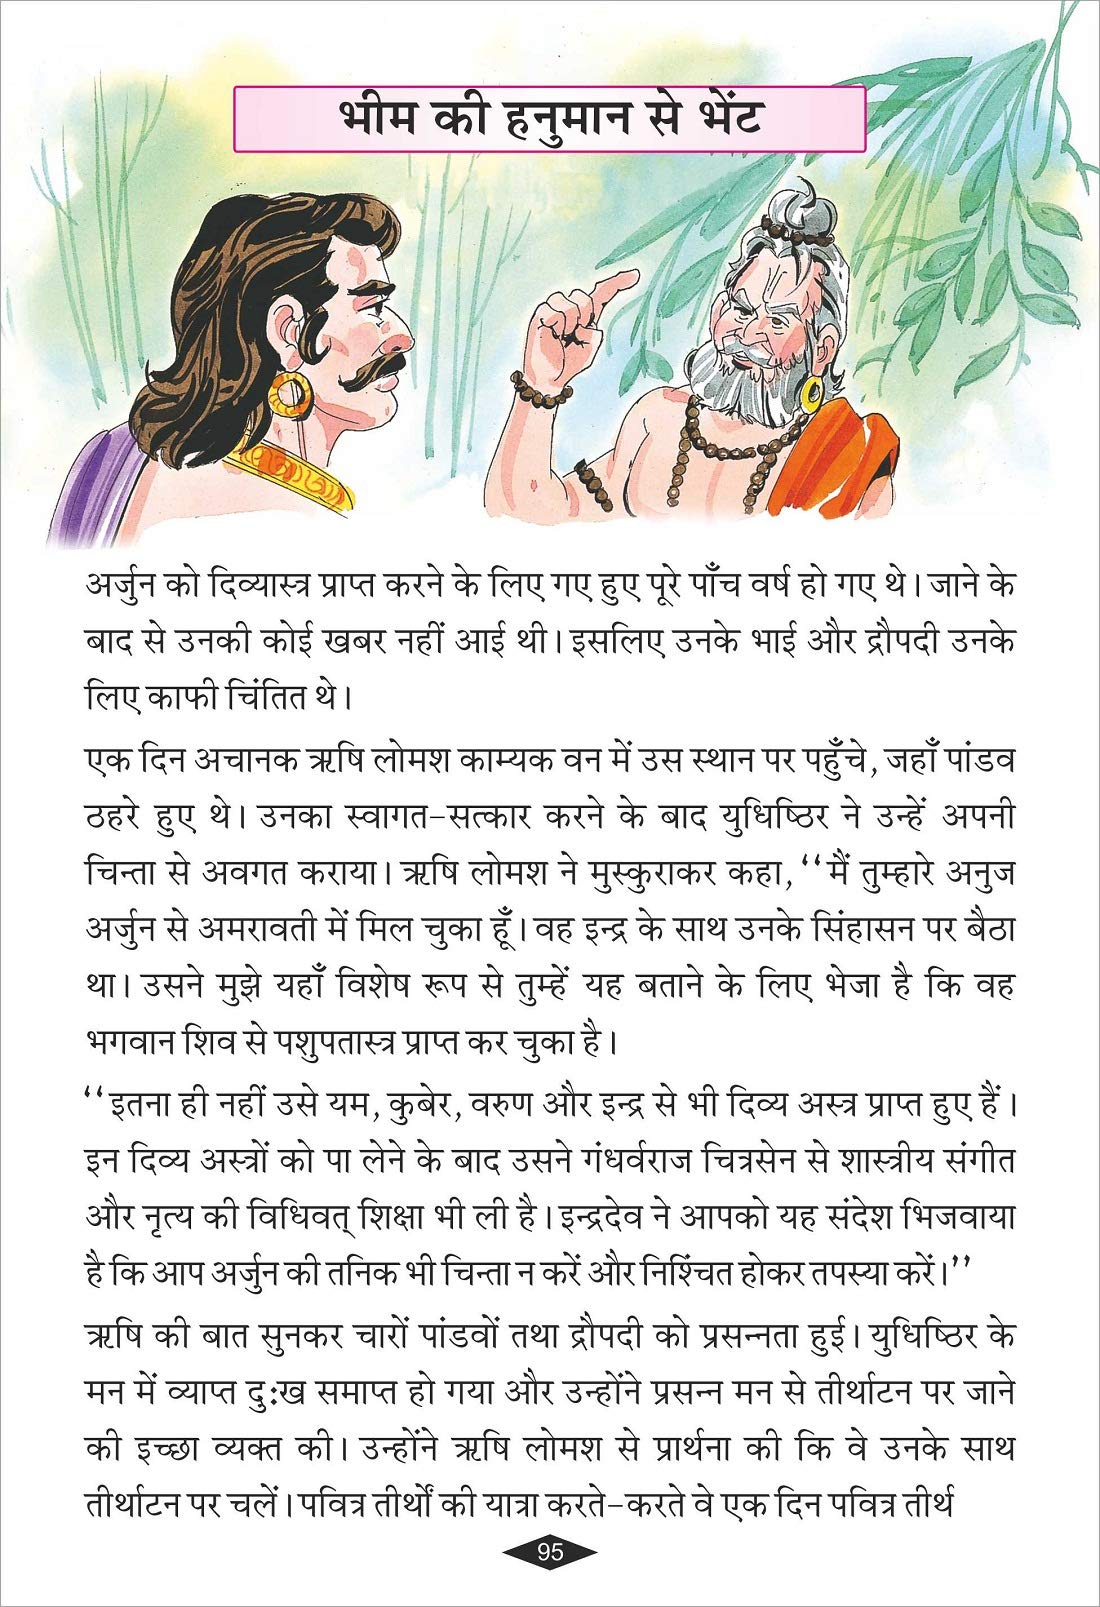 भीम की हनुमान से भेंट
अर्जुन को दिव्यास्त्र प्राप्त करने के लिए गए हुए पूरे पाँच वर्ष हो गए थे। जाने के
बाद से उनकी कोई खबर नहीं आई थी। इसलिए उनके भाई और द्रौपदी उनके
लिए काफी चिंतित थे।
एक दिन अचानक ऋषि लोमश काम्यक वन में उस स्थान पर पहुँचे, जहाँ पांडव
ठहरे हुए थे। उनका स्वागत-सत्कार करने के बाद युधिष्ठिर ने उन्हें अपनी
चिन्ता से अवगत कराया। ऋषि लोमश ने मुस्कुराकर कहा, ‘‘मैं तुम्हारे अनुज
अर्जुन से अमरावती में मिल चुका हूँ। वह इन्द्र के साथ उनके सिंहासन पर बैठा
था। उसने मुझे यहाँ विशेष रूप से तुम्हें यह बताने के लिए भेजा है कि वह
भगवान शिव से पशुपतास्त्र प्राप्त कर चुका है।
‘‘इतना ही नहीं उसे यम, कुबेर, वरुण और इन्द्र से भी दिव्य अस्त्र प्राप्त हुए हैं।
इन दिव्य अस्त्रों को पा लेने के बाद उसने गंधर्वराज चित्रसेन से शास्त्रीय संगीत
और नृत्य की विधिवत् शिक्षा भी ली है। इन्द्रदेव ने आपको यह संदेश भिजवाया
है कि आप अर्जुन की तनिक भी चिन्ता न करें और निश्चिंत होकर तपस्या करें।’’
ऋषि की बात सुनकर चारों पांडवों तथा द्रौपदी को प्रसन्नता हुई। युधिष्ठिर के
मन में व्याप्त दुःख समाप्त हो गया और उन्होंने प्रसन्न मन से तीर्थाटन पर जाने
की इच्छा व्यक्त की। उन्होंने ऋषि लोमश से प्रार्थना की कि वे उनके साथ
तीर्थाटन पर चलें। पवित्र तीर्थों की यात्रा करते-करते वे एक दिन पवित्र तीर्थ
95